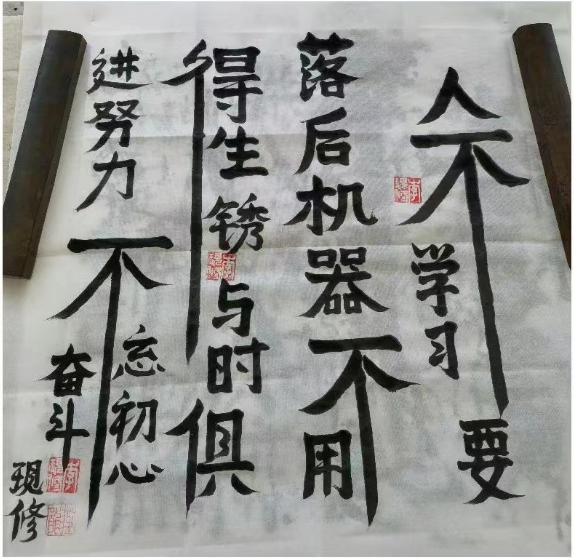 人不学习要
落后机器不用
得生锈与时俱
进努力不忘初心
奋斗
現修